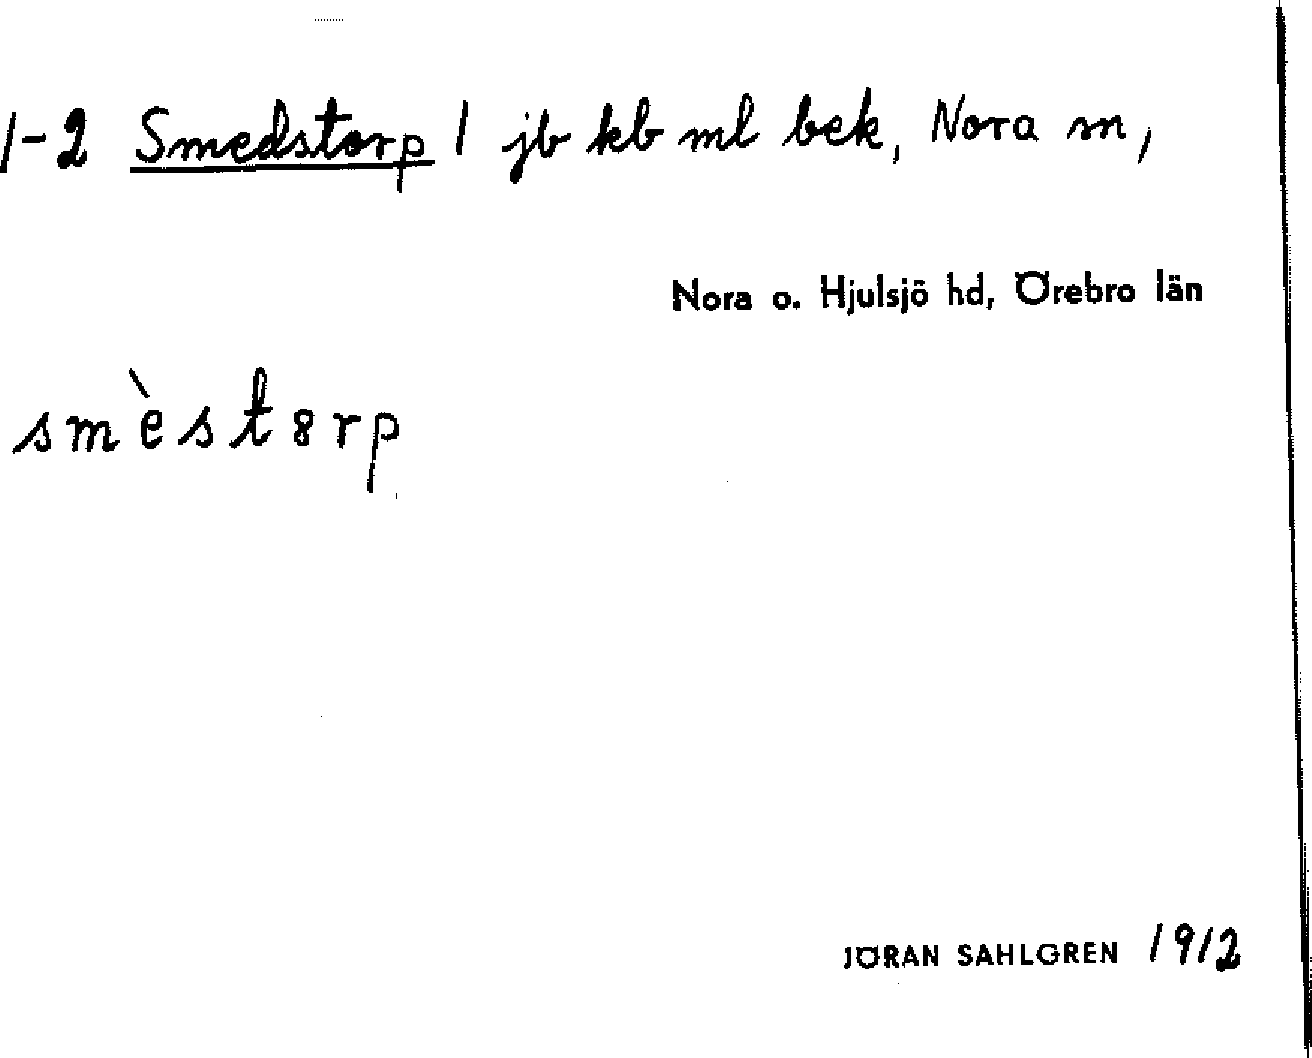 1-2 Smedstorp 1 jb kb ml bek, Nora sn,
Nora o. Hjulsjö hd, Örebro län
smèst8rp
JÖRAN SAHLGREN 1912